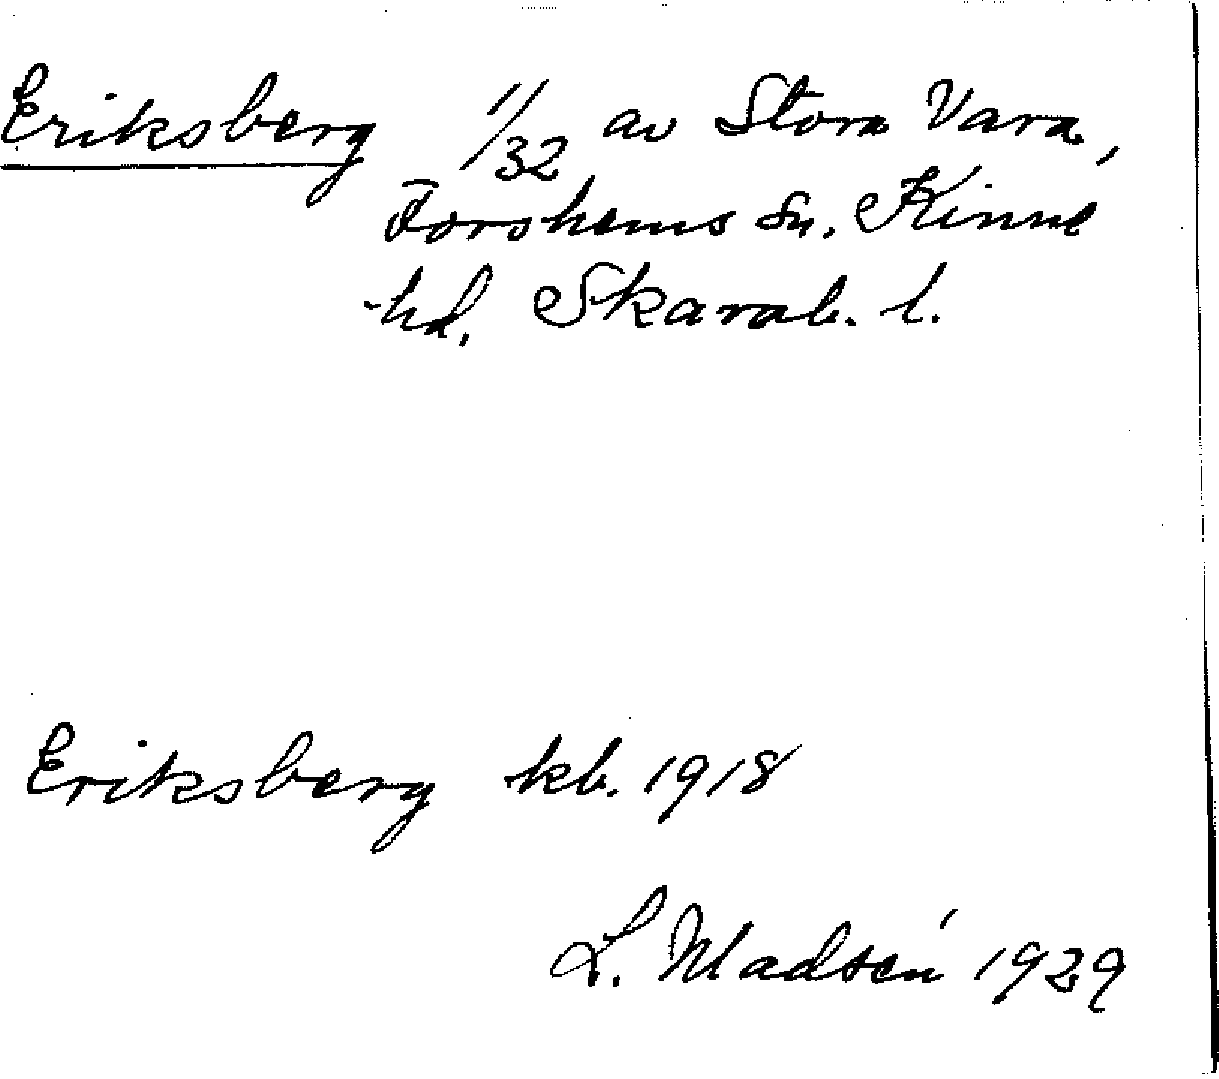 Eriksberg 1/32 av Stora Vara,
Forshems sn. Kinne
hd. Skarab. l.
Eriksberg kb. 1918
L. Madsén 1929